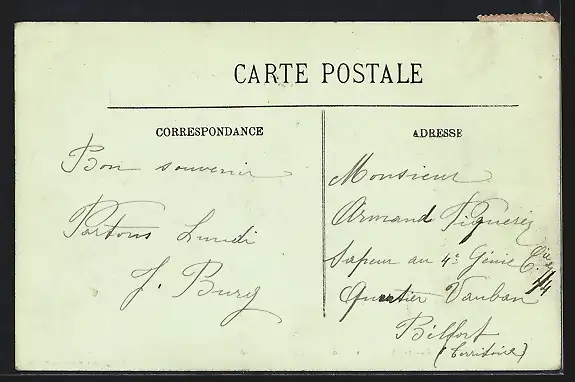 CARTE POSTALE
CORRESPONDANCE
Bon souvenir
Partons Lundi
J. Burg
ADRESSE
Monsieur
Armand
Sapeur au 4e Génie Cie
4/4
Quartier Vauban
Bélfort
(territoire)